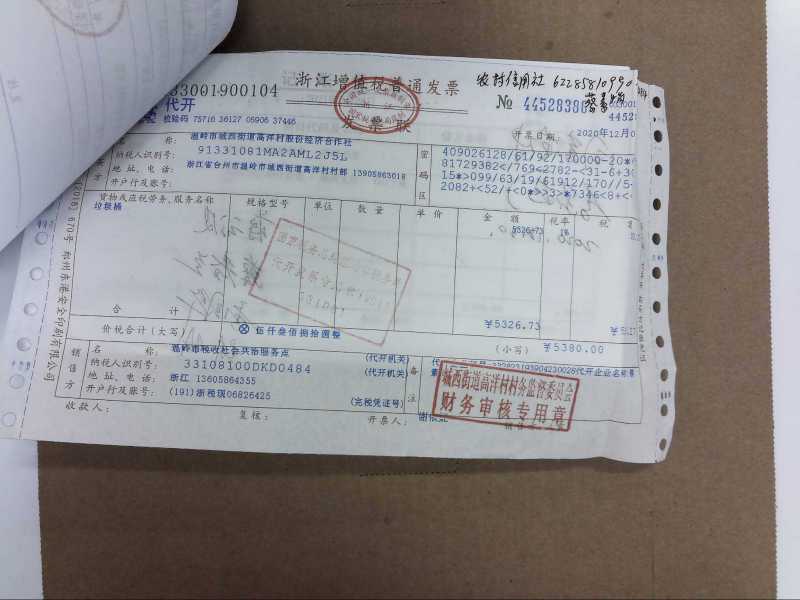 浙江增值税普通发票
农村信用社 62285810990
33001900104
代开
No 44528380
校验码 75716 36127 05906 37446
发票联
开票日期: 2020年12月0
名 称: 温岭市城西街道高洋村股份经济合作社
纳税人识别号: 91331081MA2AML2J5L
地址、电话: 浙江省台州市温岭市城西街道高洋村村部 13905863018
开户行及账号:
密码区
409026128/61/92/170000-20*
81729382</769<2782-<31-6+3
15*>099/63/19/61912/170//5-
2082+<52/+<0*>>3>*7346<8+<
货物或应税劳务、服务名称 规格型号 单位 数量 单价 金额 税率 税
垃圾桶 5326.73 1%
合 计 ¥5326.73
价税合计(大写) ⊗ 伍仟叁佰捌拾圆整 (小写) ¥5380.00
销售方
名 称: 温岭市税收社会共治服务点 (代开机关)
纳税人识别号: 33108100DKD0484 (代开机关)
地址、电话: 浙江 13605864355
开户行及账号: (191)浙税现06826425 (完税凭证号)
备注
代开企业名称:
城西街道高洋村村务监督委员会
财务审核专用章
收款人: 复核: 开票人:
郑州东港安全印刷有限公司